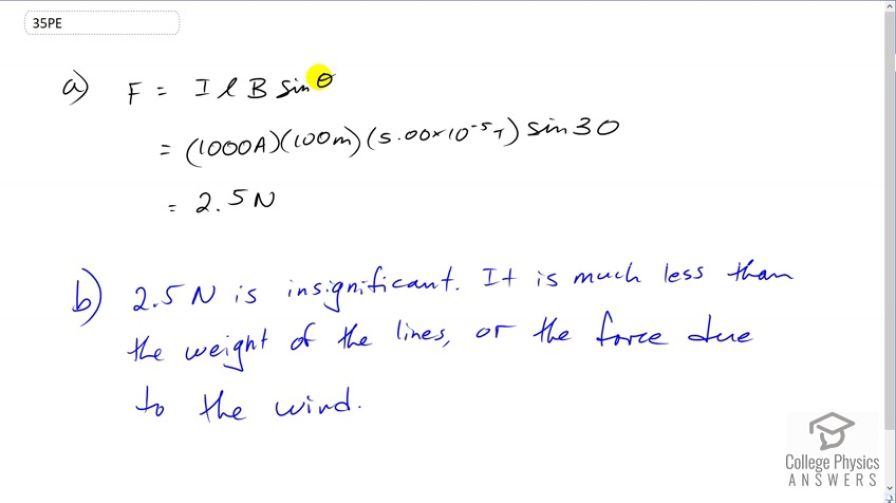 35PE
a) F = I l B sin θ
= (1000A)(100m)(5.00×10⁻⁵T) sin 30
= 2.5 N
b) 2.5 N is insignificant. It is much less than
the weight of the lines, or the force due
to the wind.
College Physics
ANSWERS